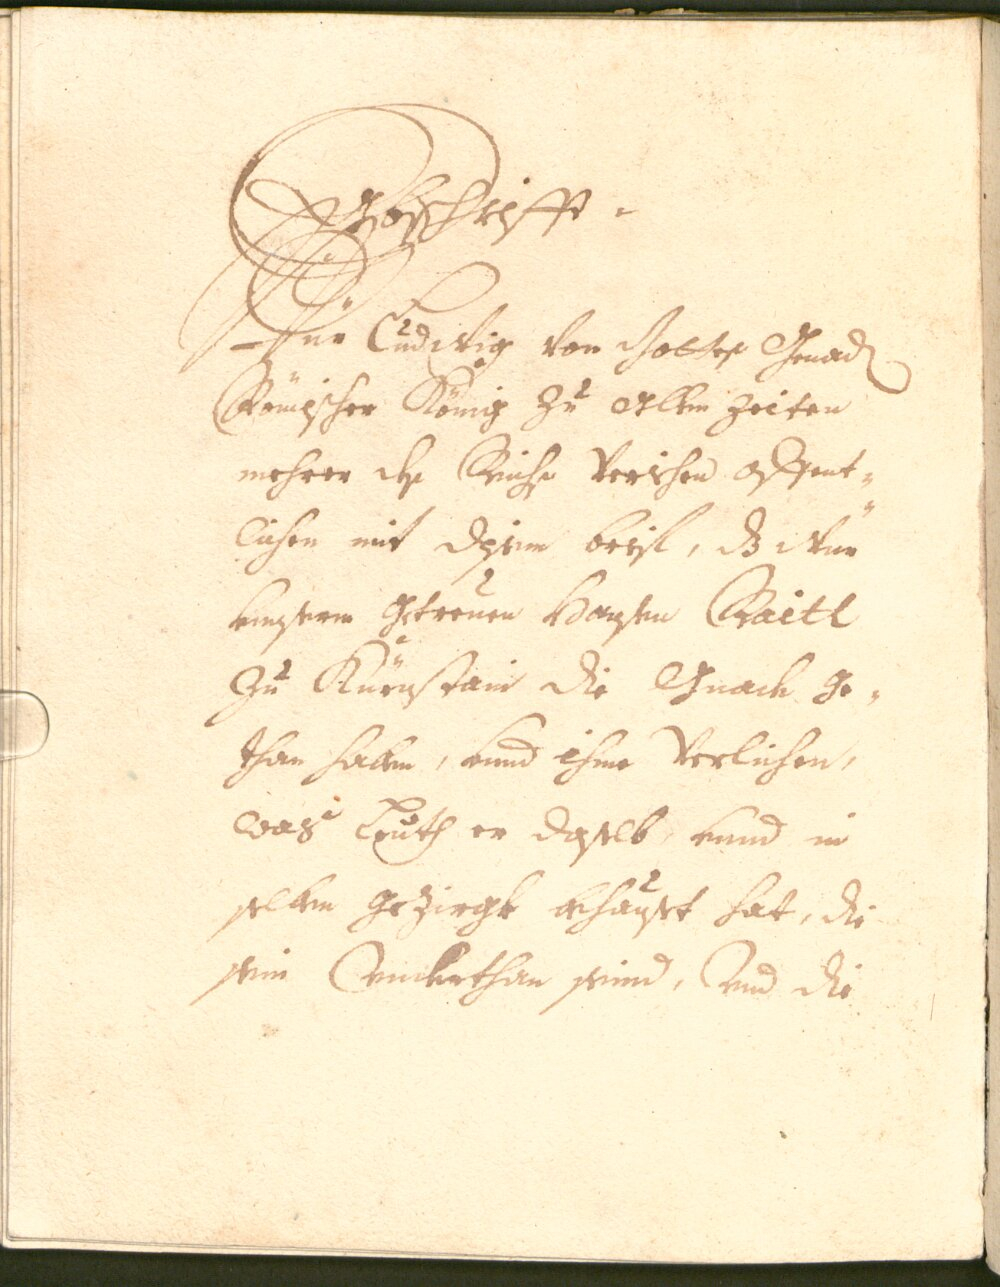 Abschrifft.
Wür Ludwig von Gottes Gnad
Römischer König Zu Allen Zeiten
mehrer des Reichs Veriehen offent-
lichen mit disem brief, dz wür
unnserm getreuen Hansen Raitl
Zu Kürnstain die Gnade ge-
than haben, unnd ihme Verlichen,
was Leuth er daselb, unnd in
selben gezirgkh behauset hat, die
sein Underthan seind, Und die